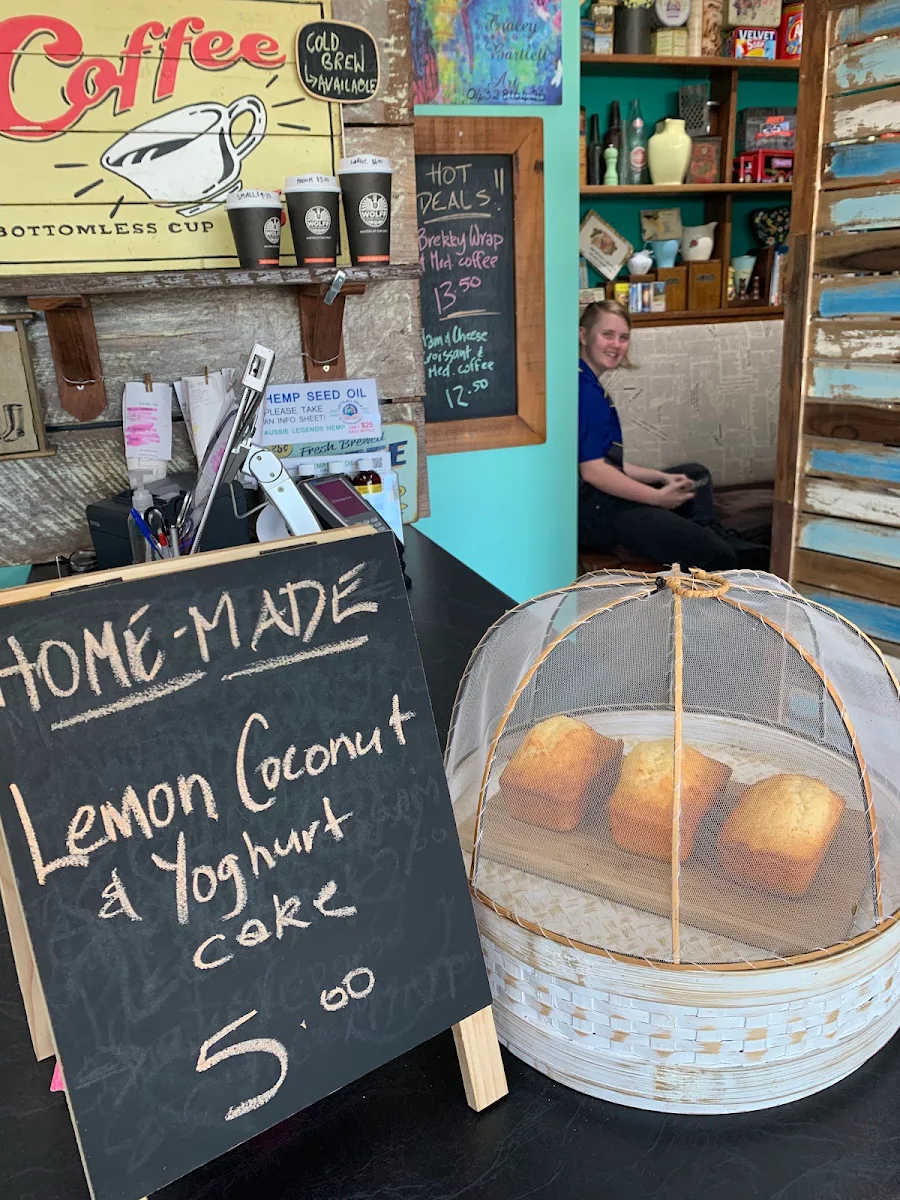 Coffee
COLD
BREW
↳AVAILABLE
BOTTOMLESS CUP
WOLFF
WOLFF
WOLFF
Tracey
Bartlett
Art
HOT
DEALS!!
Brekky Wrap
& Med. coffee
13.50
Ham & Cheese
Croissant &
Med. coffee
12.50
VELVET
HEMP SEED OIL
PLEASE TAKE
AN INFO SHEET!
AUSSIE LEGENDS HEMP
$25
25¢ Fresh Brewed
HOME-MADE
Lemon Coconut
& Yoghurt
cake
5.00